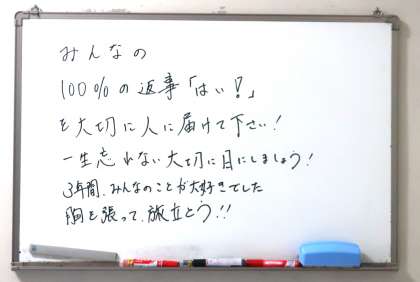 みんなの
100%の返事「はい!」
を大切に人に届けて下さい!
一生忘れない大切に日にしましょう!
3年間、みんなのことが大好きでした
胸を張って、旅立とう!!